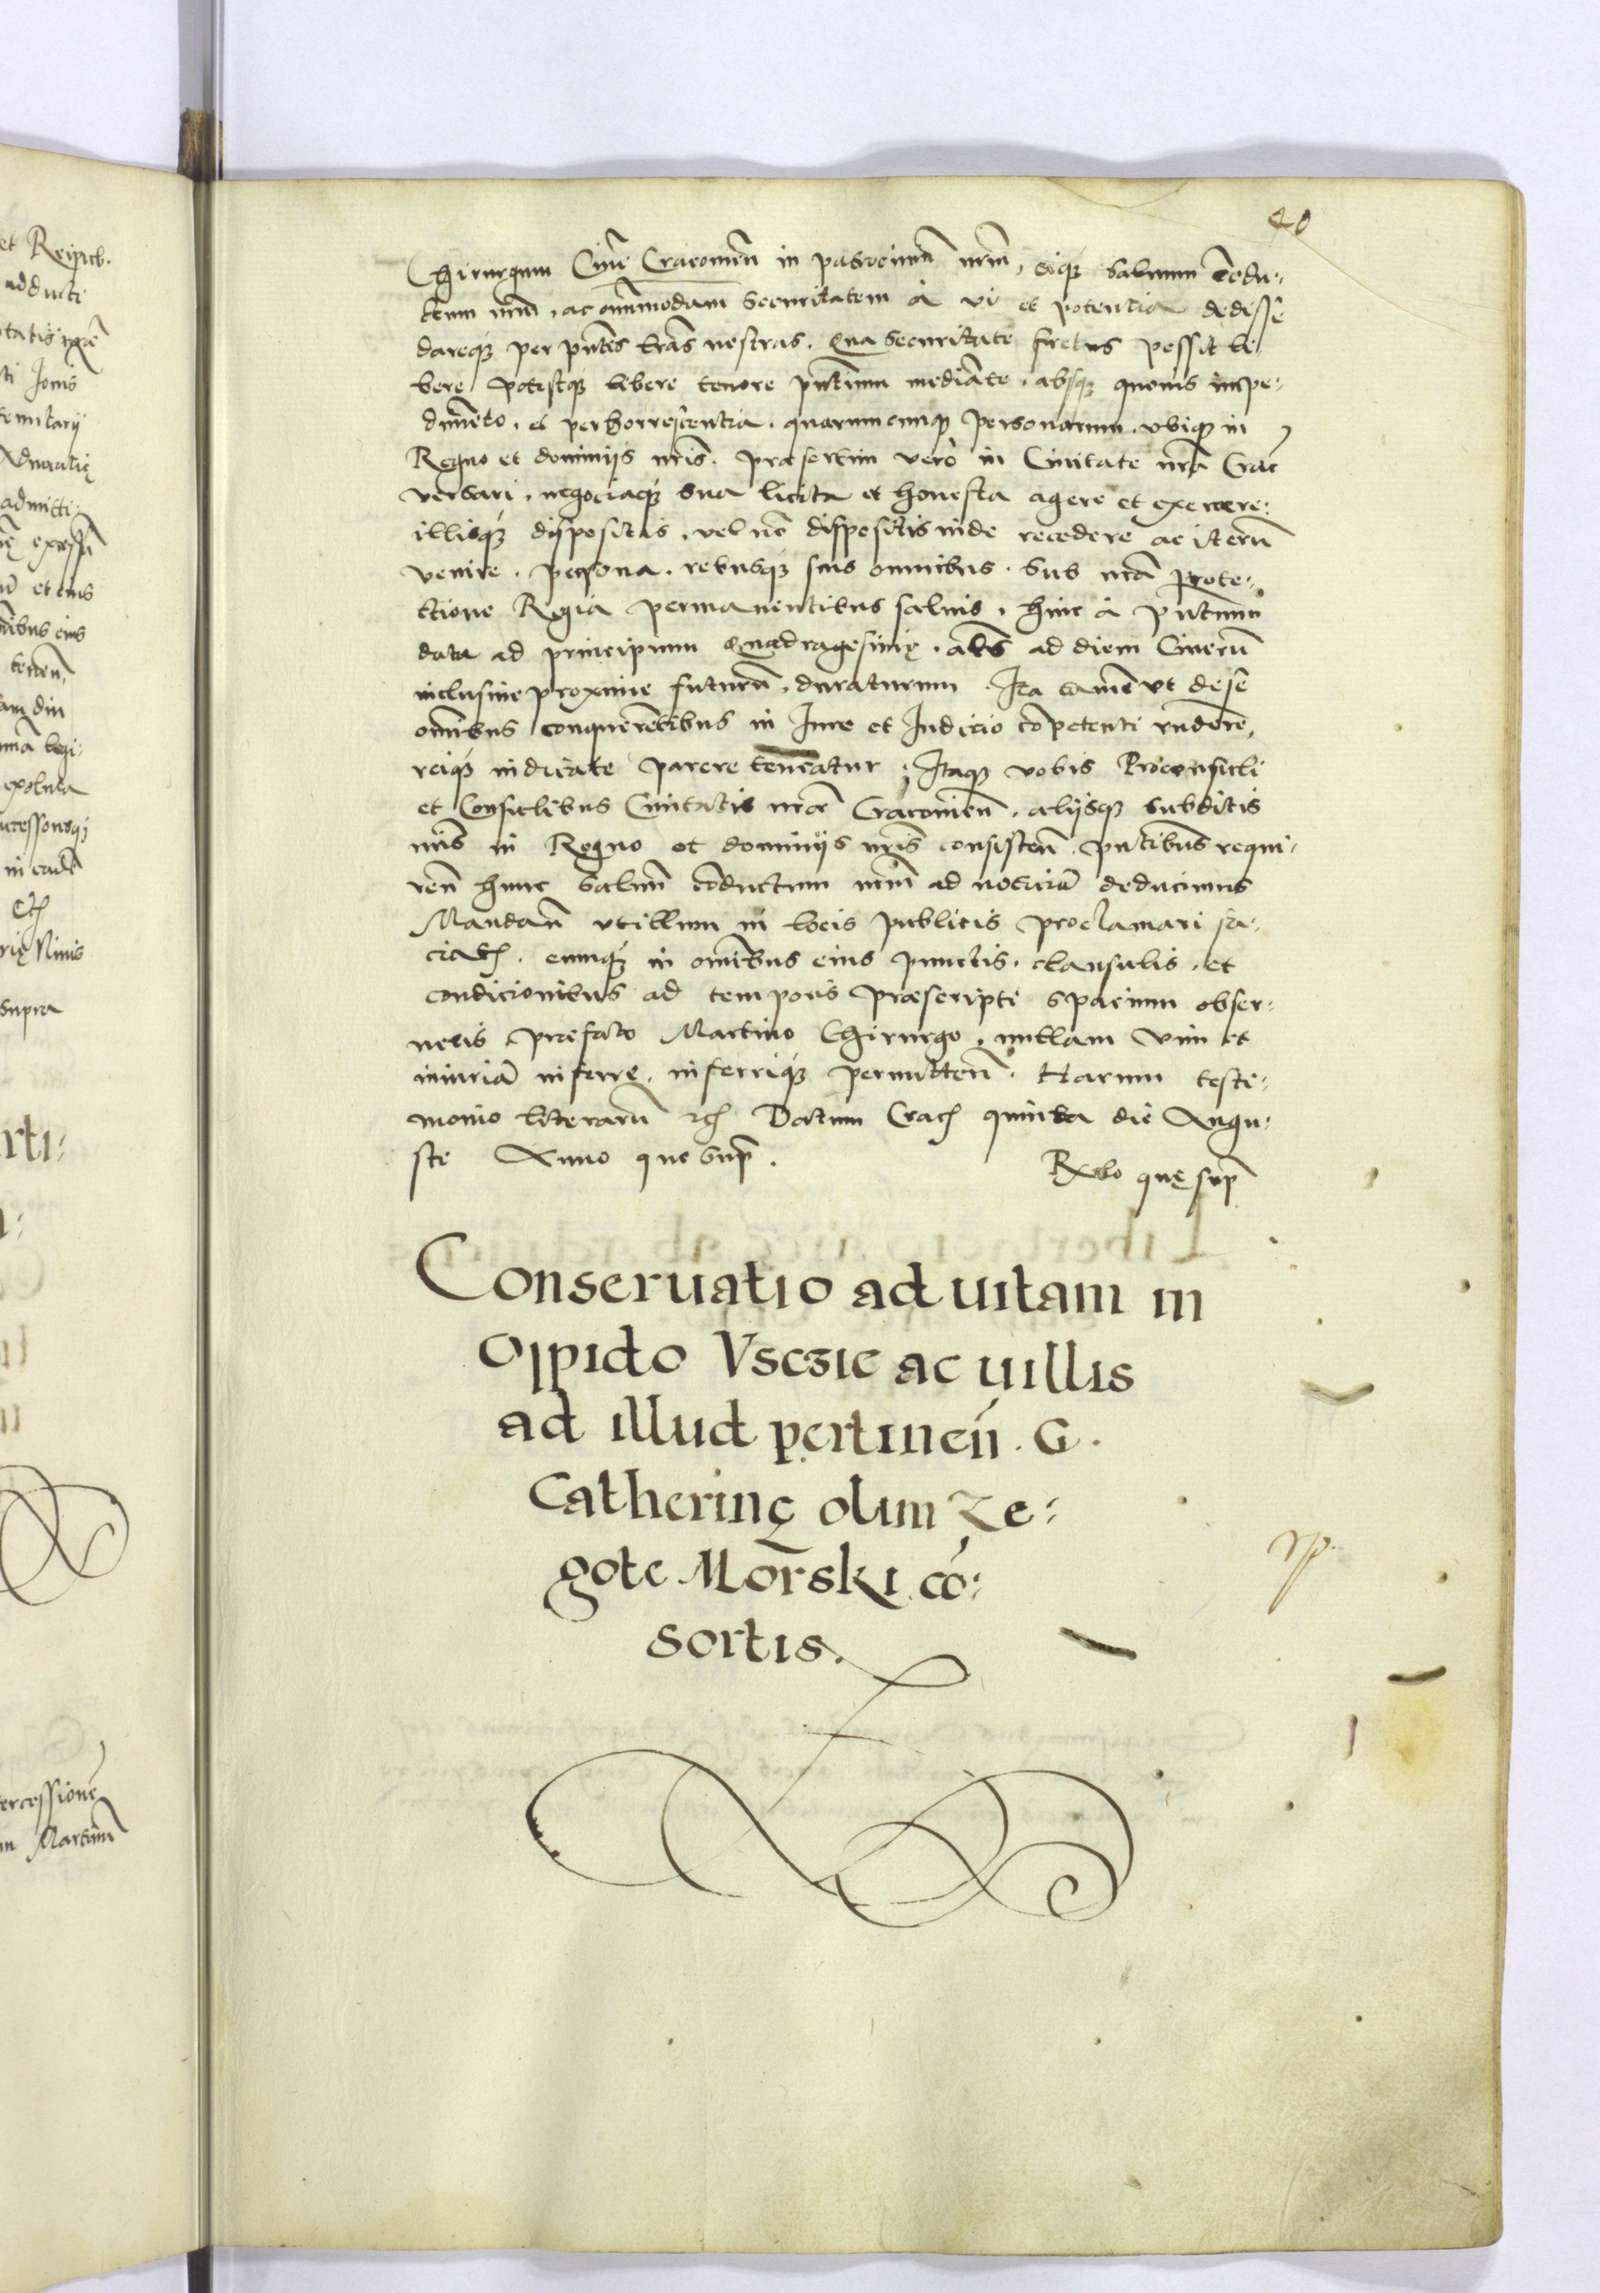 40
Chirurgum Civē Cracovieñ in patrociniū nr̄m, eiq́ue salvum cōdu-
ctum nr̄m, ac om̄modam securitatem à vi et potentia dedisse
dareq́ue per pn̄tes lrās nostras. Qua securitate fretus possit li-
bere potestq́ue libere tenore pn̄tium mediāte, absq́ue quovis impe-
dimēto, et perhorrescentia quarumcunq́ue personarum, ubiq́ue in
Regno et dominijs nr̄is. Præsertim vero in Civitate nr̄a Crac
versari, negociaq́ue sua licita et honesta agere et exercere:
illisq́ue dispositis, vel nō dispositis inde recedere ac iterū
venire, persona, rebusq́ue suis omnibus, sub nr̄a prote-
ctione Regia permanentibus salvis, hinc à pn̄tium
data ad principium Quadragesimę, als ad diem Cinerū
inclusive proxime futurā, duraturum. Ita tamē ut de se
om̄ibus conquerētibus in Iure et Iudicio cōpetenti rn̄dere,
reiq́ue iudicate parere teneatur; Itaq́ue vobis Proconsuli
et Consulibus Civitatis nr̄æ Cracovieñ, alijsq́ue subditis
nr̄is in Regno et dominijs nr̄is consisteñ, pn̄tibus requi-
reñ hunc salvū cōductum nr̄m ad noticiā deducimus
Mandañ ut illum in locis publicis proclamari fa-
ciatis, eumq́ue in om̄ibus eius punctis, clausulis, et
condicionibus ad temporis præscripti spacium obser-
vetis, præfato Martino Chirurgo, nullam vim et
iniuriā inferre, inferriq́ue permitteñ. Harum testi-
monio literarū etc Datum Crac quinta die Augu-
ste Anno quo supr̄.
Relo quę supr̄
Conservatio ad vitam in
oppido Vsczie ac villis
ad illud pertineñ. G.
Catherinę olim Ze-
gote Morski cō-
sortis.